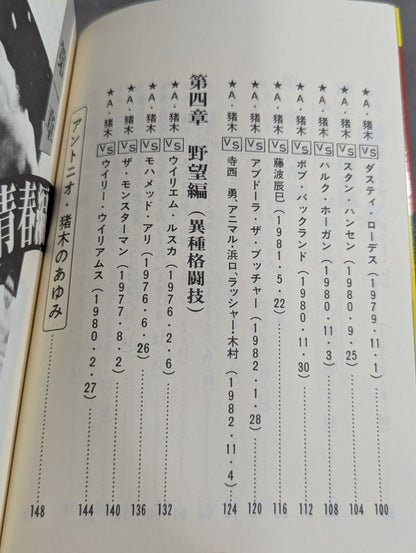 ★A・猪木 VS ダスティ・ローデス(1979・11・1)……100
★A・猪木 VS スタン・ハンセン(1980・9・25)……104
★A・猪木 VS ハルク・ホーガン(1980・11・3)……108
★A・猪木 VS ボブ・バックランド(1980・11・30)……112
★A・猪木 VS 藤波辰巳(1981・5・22)……116
★A・猪木 VS アブドーラ・ザ・ブッチャー(1982・1・28)……120
★A・猪木 VS 寺西 勇、アニマル・浜口、ラッシャー・木村(1982・11・4)……124
第四章 野望編(異種格闘技)
★A・猪木 VS ウイリエム・ルスカ(1976・2・6)……132
★A・猪木 VS モハメッド・アリ(1976・6・26)……136
★A・猪木 VS ザ・モンスターマン(1977・8・2)……140
★A・猪木 VS ウイリー・ウイリアムス(1980・2・27)……144
アントニオ・猪木のあゆみ……148
青春